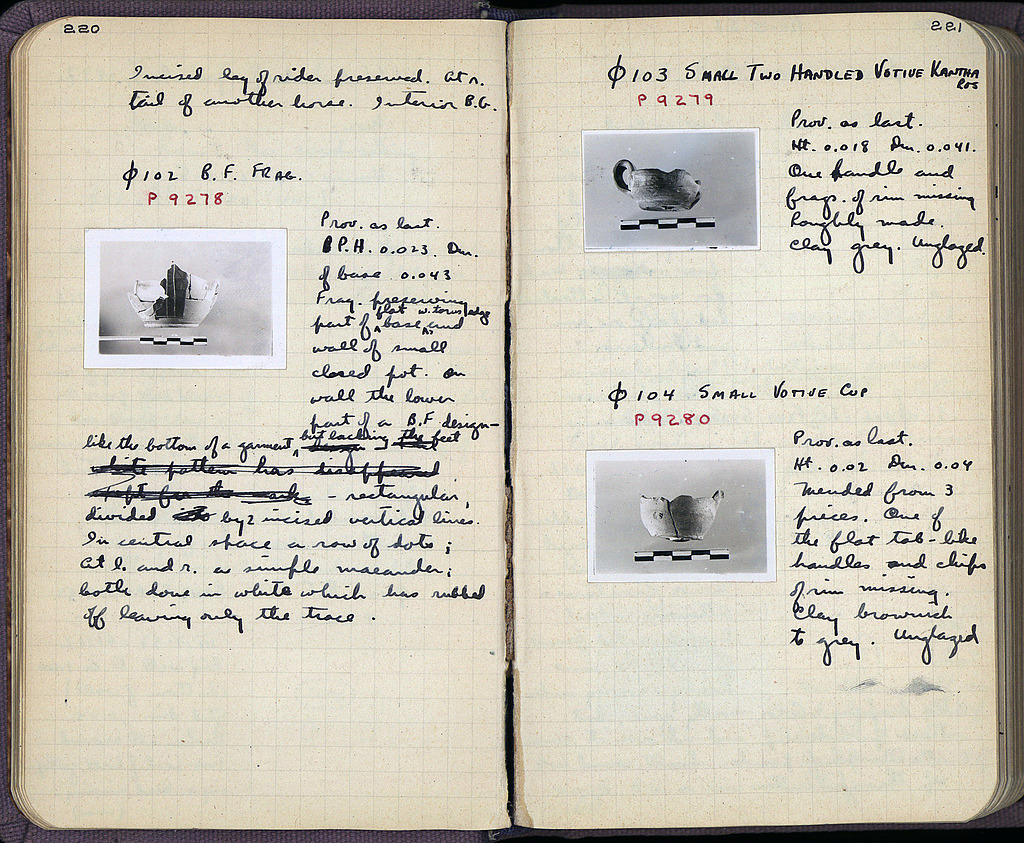 220
Incised leg of rider preserved. At r.
tail of another horse. Interior B.G.
φ102 B.F. FRAG.
P 9278
Prov. as last.
P.H. 0.023. Dm.
of base 0.043
Frag. preserving
flat w. torus edge
part of base and
wall of small
closed pot. On
wall the lower
part of a B.F design—
like the bottom of a garment, but lacking the feet
white pattern has disappeared
- rectangular,
divided by 2 incised vertical lines.
In central space a row of dots;
At l. and r. a simple maeander;
both done in white which has rubbed
off leaving only the trace.
221
φ103 SMALL TWO HANDLED VOTIVE KANTHA
ROS
P 9279
Prov. as last.
Ht. 0.018 Dm. 0.041.
One handle and
frags. of rim missing
Roughly made.
Clay grey. Unglazed.
φ104 SMALL VOTIVE CUP
P 9280
Prov. as last.
Ht. 0.02 Dm. 0.04
Mended from 3
pieces. One of
the flat tab-like
handles and chips
of rim missing.
Clay brownish
to grey. Unglazed